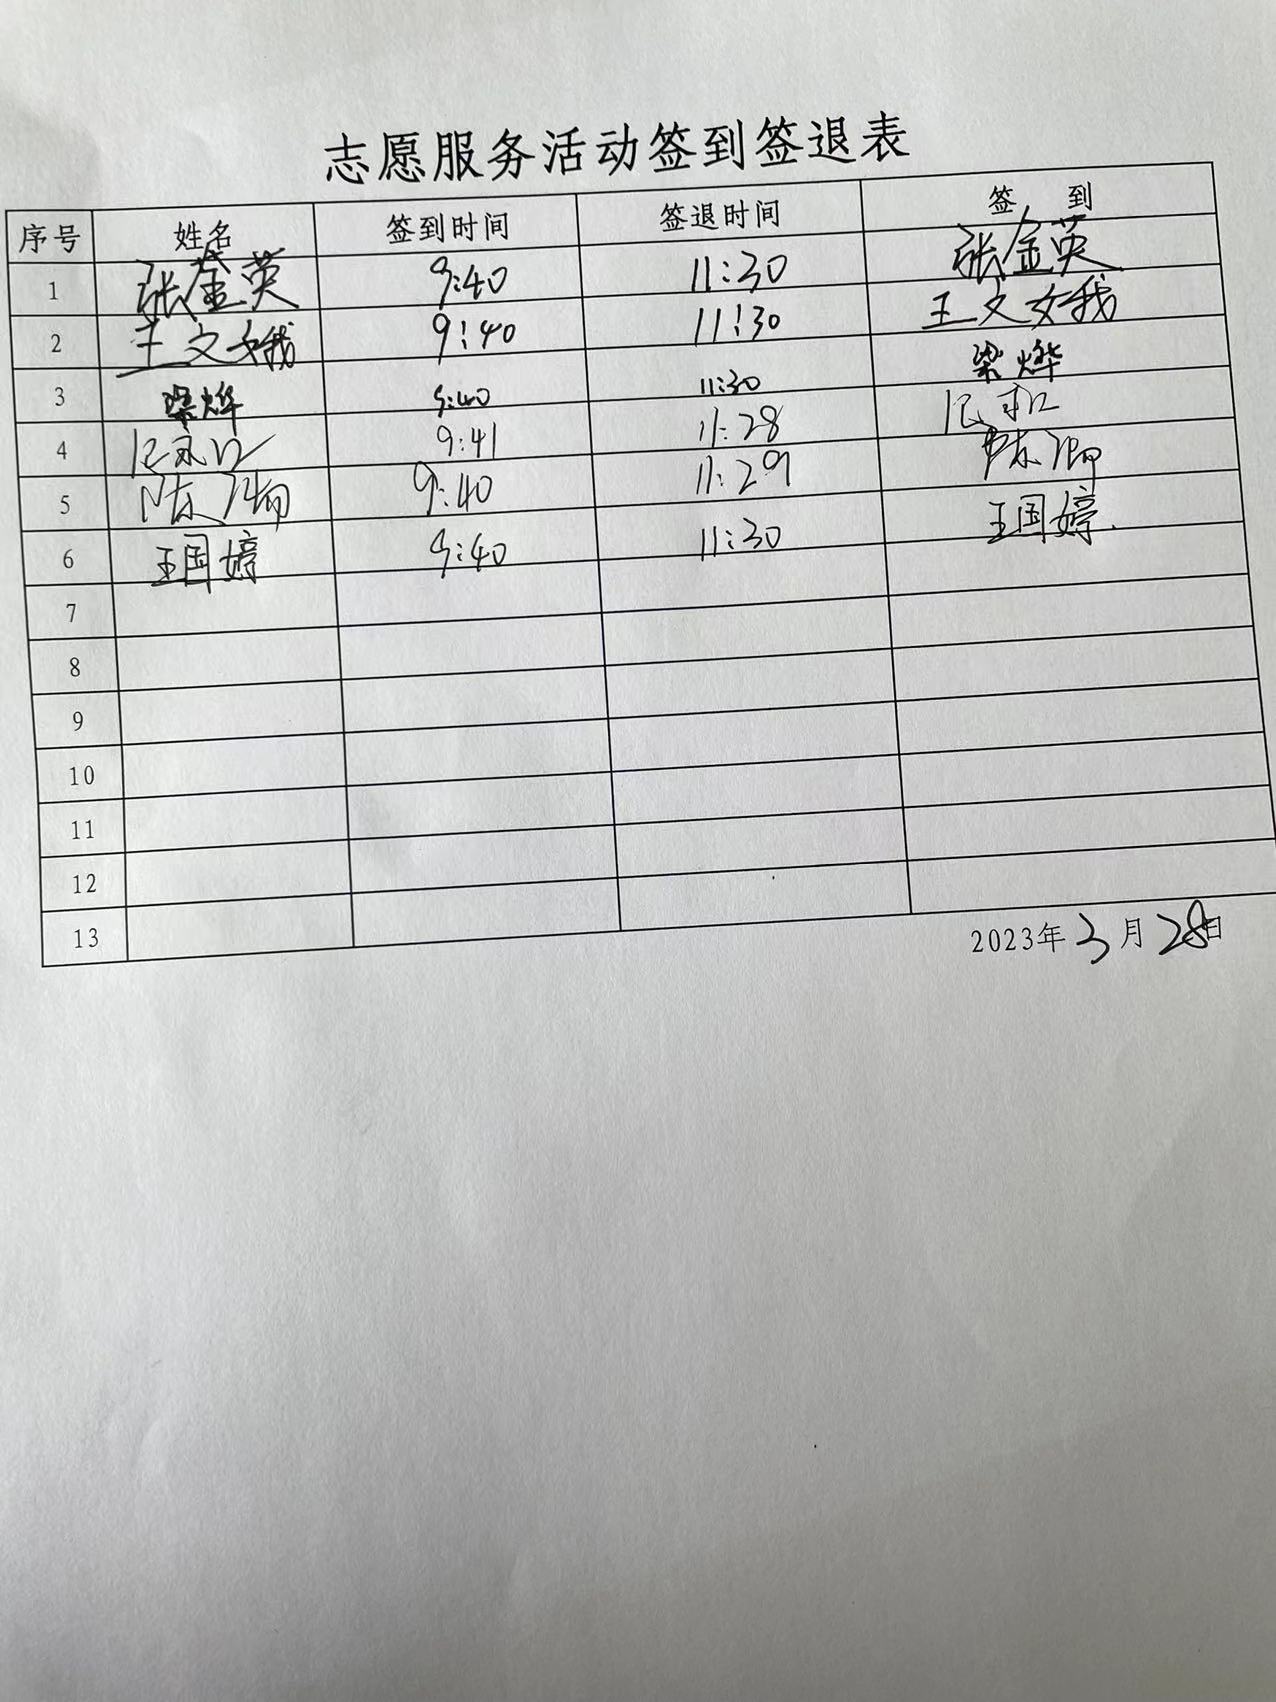 志愿服务活动签到签退表
序号 姓名 签到时间 签退时间 签 到
1 张金英 9:40 11:30 张金英
2 王文娥 9:40 11:30 王文娥
3 梁烨 9:40 11:30 梁烨
4 9:41 11:28
5 陈卿 9:40 11:29 陈卿
6 王国婷 9:40 11:30 王国婷
7
8
9
10
11
12
13
2023年3月28日